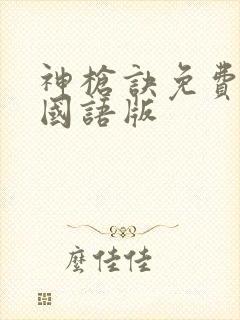 神槍訣免費
國語版
麼佳佳